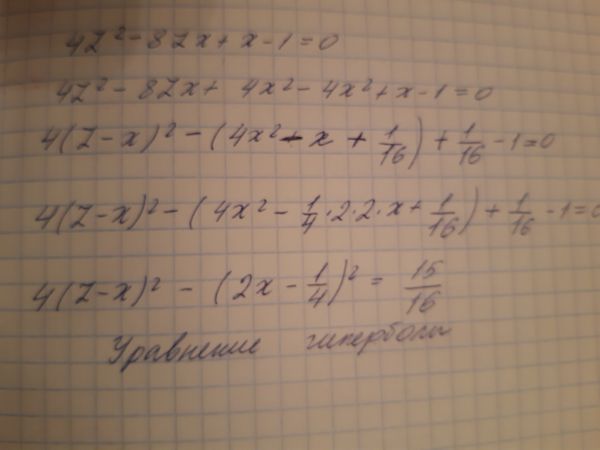 4z² - 8zx + x - 1 = 0
4z² - 8zx + 4x² - 4x² + x - 1 = 0
4(z - x)² - (4x² - x + 1/16) + 1/16 - 1 = 0
4(z - x)² - (4x² - 1/4 · 2 · 2 · x + 1/16) + 1/16 - 1 = 0
4(z - x)² - (2x - 1/4)² = 15/16
Уравнение гиперболы